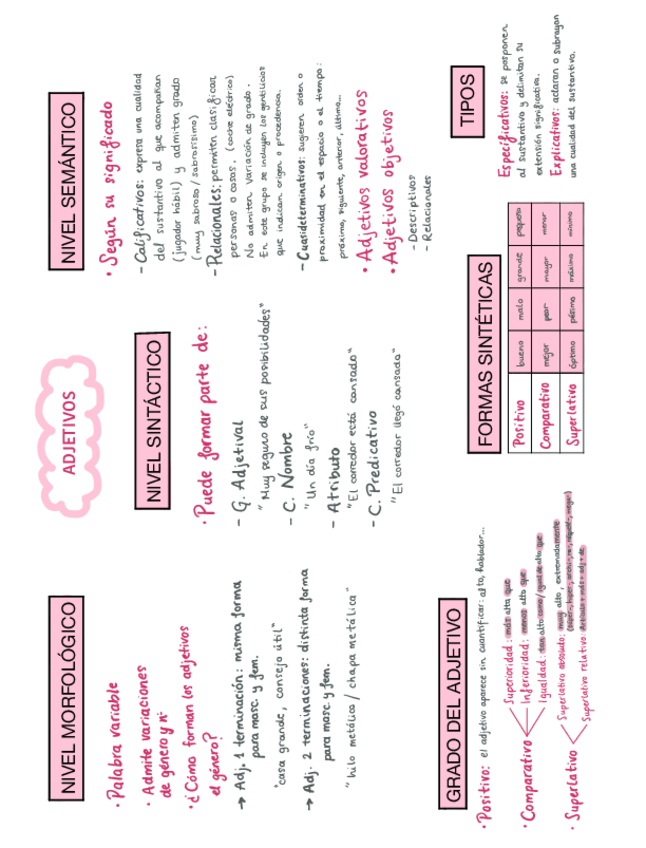 ADJETIVOS
NIVEL MORFOLÓGICO
· Palabra variable
· Admite variaciones
de género y nº
· ¿Cómo forman los adjetivos
el género?
→ Adj. 1 terminación: misma forma
para masc. y fem.
"casa grande, consejo útil"
→ Adj. 2 terminaciones: distinta forma
para masc. y fem.
"hilo metálico / chapa metálica"
NIVEL SINTÁCTICO
· Puede formar parte de:
- G. Adjetival
"Muy seguro de sus posibilidades"
- C. Nombre
"Un día frío"
- Atributo
"El corredor está cansado"
- C. Predicativo
"El corredor llegó cansado"
NIVEL SEMÁNTICO
· Según su significado
- Calificativos: expresa una cualidad
del sustantivo al que acompañan
(jugador hábil) y admiten grado
(muy sabroso / sabrosísimo)
- Relacionales: permiten clasificar
personas o cosas. (coche eléctrico)
No admiten variación de grado.
En este grupo se incluyen los gentilicios
que indican origen o procedencia.
- Cuasideterminativos: sugieren orden o
proximidad en el espacio o el tiempo:
próximo, siguiente, anterior, último...
· Adjetivos valorativos
· Adjetivos objetivos
- Descriptivos
- Relacionales
GRADO DEL ADJETIVO
· Positivo: el adjetivo aparece sin cuantificar: alto, hablador...
· Comparativo
Superioridad: más alta que
Inferioridad: menos alto que
Igualdad: tan alto como / igual de alto que
· Superlativo
Superlativo absoluto: muy alto, extremadamente
(súper-, hiper-, archi-, re-,
Superlativo relativo: Artículo + más + adj + de
FORMAS SINTÉTICAS
Positivo bueno malo grande pequeño
Comparativo mejor peor mayor menor
Superlativo óptimo pésimo máximo mínimo
TIPOS
Especificativos: se posponen
al sustantivo y delimitan su
extensión significativa.
Explicativos: aclaran o subrayan
una cualidad del sustantivo.